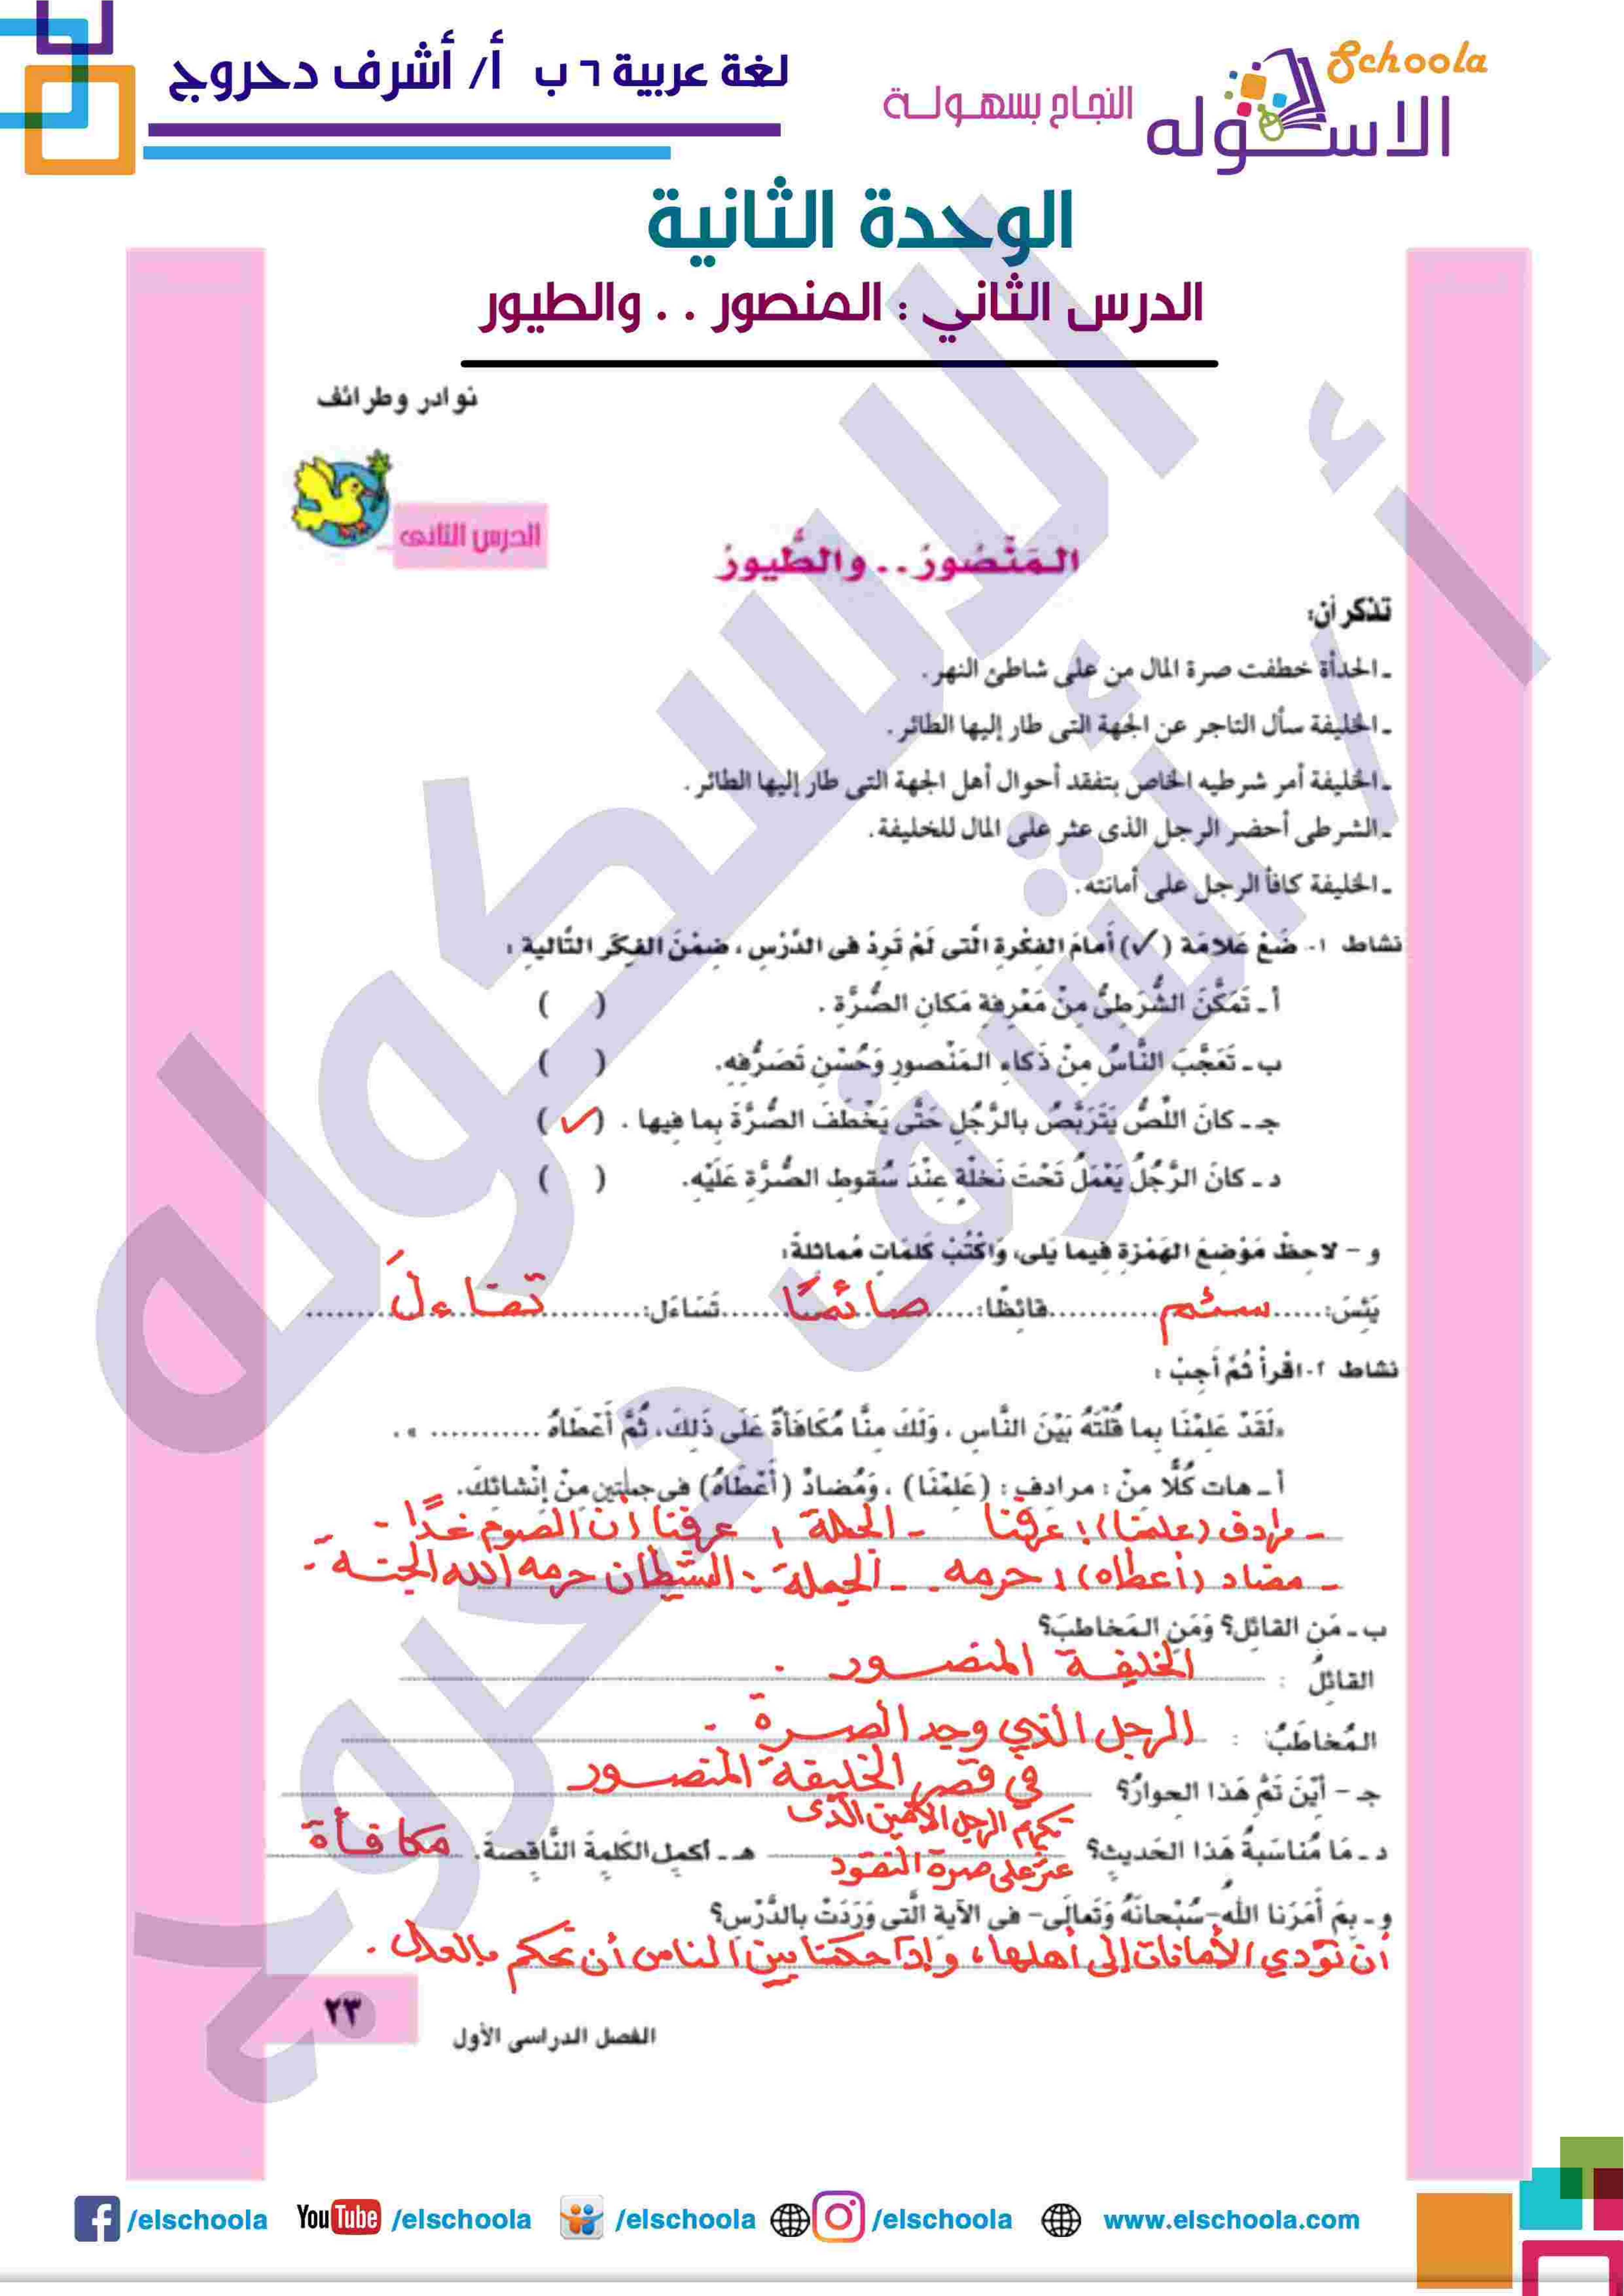 لغة عربية ٦ ب أ/ أشرف دحروج
Schoola
الاسكوله
النجاح بسهولة
الوحدة الثانية
الدرس الثاني : المنصور . . والطيور
نوادر وطرائف
الدرس الثانى
المَنْصُورُ . . والطُّيورُ
تذكر أن:
ـ الحدأة خطفت صرة المال من على شاطئ النهر .
ـ الخليفة سأل التاجر عن الجهة التى طار إليها الطائر .
ـ الخليفة أمر شرطيه الخاص بتفقد أحوال أهل الجهة التى طار إليها الطائر .
ـ الشرطى أحضر الرجل الذى عثر على المال للخليفة .
ـ الخليفة كافأ الرجل على أمانته .
نشاط ١- ضَعْ عَلامَة (✓) أَمامَ الفِكْرةِ الَّتى لَمْ تَرِدْ فى الدَّرْسِ ، ضِمْنَ الفِكَرِ التَّالية :
أ ـ تَمَكَّنَ الشُّرَطِىُّ مِنْ مَعْرِفةِ مَكانِ الصُّرَّةِ . ( )
ب ـ تَعَجَّبَ النَّاسُ مِنْ ذَكاءِ المَنْصورِ وَحُسْنِ تَصَرُّفِهِ. ( )
جـ ـ كانَ اللِّصُّ يَتَرَبَّصُ بالرَّجُلِ حَتَّى يَخْطَفَ الصُّرَّةَ بِما فيها . (✓)
د ـ كانَ الرَّجُلُ يَعْمَلُ تَحْتَ نَخْلَةٍ عِنْدَ سُقوطِ الصُّرَّةِ عَلَيْهِ. ( )
و - لاحِظْ مَوْضِعَ الهَمْزةِ فِيما يَلى، وَاكْتُبْ كَلِماتٍ مُماثلةً:
يَئِسَ: ...... سئم ........... قائِظًا: ...... صائمًا ...... تَسَاءَل: ........... تفاءلَ .......
نشاط ٢- اقْرأْ ثُمَّ أَجِبْ :
«لَقَدْ عَلِمْنَا بِما قُلْتَهُ بَيْنَ النَّاسِ ، وَلَكَ مِنَّا مُكَافَأَةٌ عَلَى ذَلِكَ، ثُمَّ أَعْطَاهُ ........... » .
أ ـ هات كُلًّا مِنْ : مرادفِ : (عَلِمْنَا) ، وَمُضادْ (أَعْطَاهُ) فى جملتينِ مِنْ إِنْشائِكَ.
ـ مرادف (علمنا) : عرفنا ـ الجملة : عرفنا أن الصوم غدًا .
ـ مضاد (أعطاه) : حرمه . ـ الجملة : الشيطان حرمه الله الجنة .
ب ـ مَنِ القائِل؟ وَمَنِ المَخاطبَ؟
القائلُ : الخليفة المنصور .
المُخاطَبُ : الرجل الذي وجد الصرة .
جـ - أَيْنَ تَمَّ هَذا الحِوارُ؟ في قصر الخليفة المنصور
د ـ مَا مُناسَبةُ هَذا الحَديثِ؟ تكريم الرجل الأمين الذى عثر على صرة النقود
هـ ـ أكمِلِ الكَلِمةَ النَّاقِصةَ. مكافأة
و ـ بِمَ أَمَرَنا اللهُ-سُبْحانَهُ وَتَعالَى- فى الآيةِ الَّتى وَرَدَتْ بالدَّرْسِ؟
أن نؤدي الأمانات إلى أهلها ، وإذا حكمنا بين الناس أن نحكم بالعدل .
٢٣
الفصل الدراسى الأول
/elschoola
YouTube /elschoola
/elschoola
/elschoola
www.elschoola.com
الاسكوله
أ / أشرف دحروج